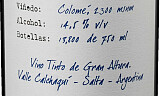 Viñedo: Colomé, 2300 msnm
Alcohol: 14,5 % v/v
Botellas: 15,800 de 750 ml
Vino Tinto de Gran Altura.
Valle Calchaquí - Salta - Argentina